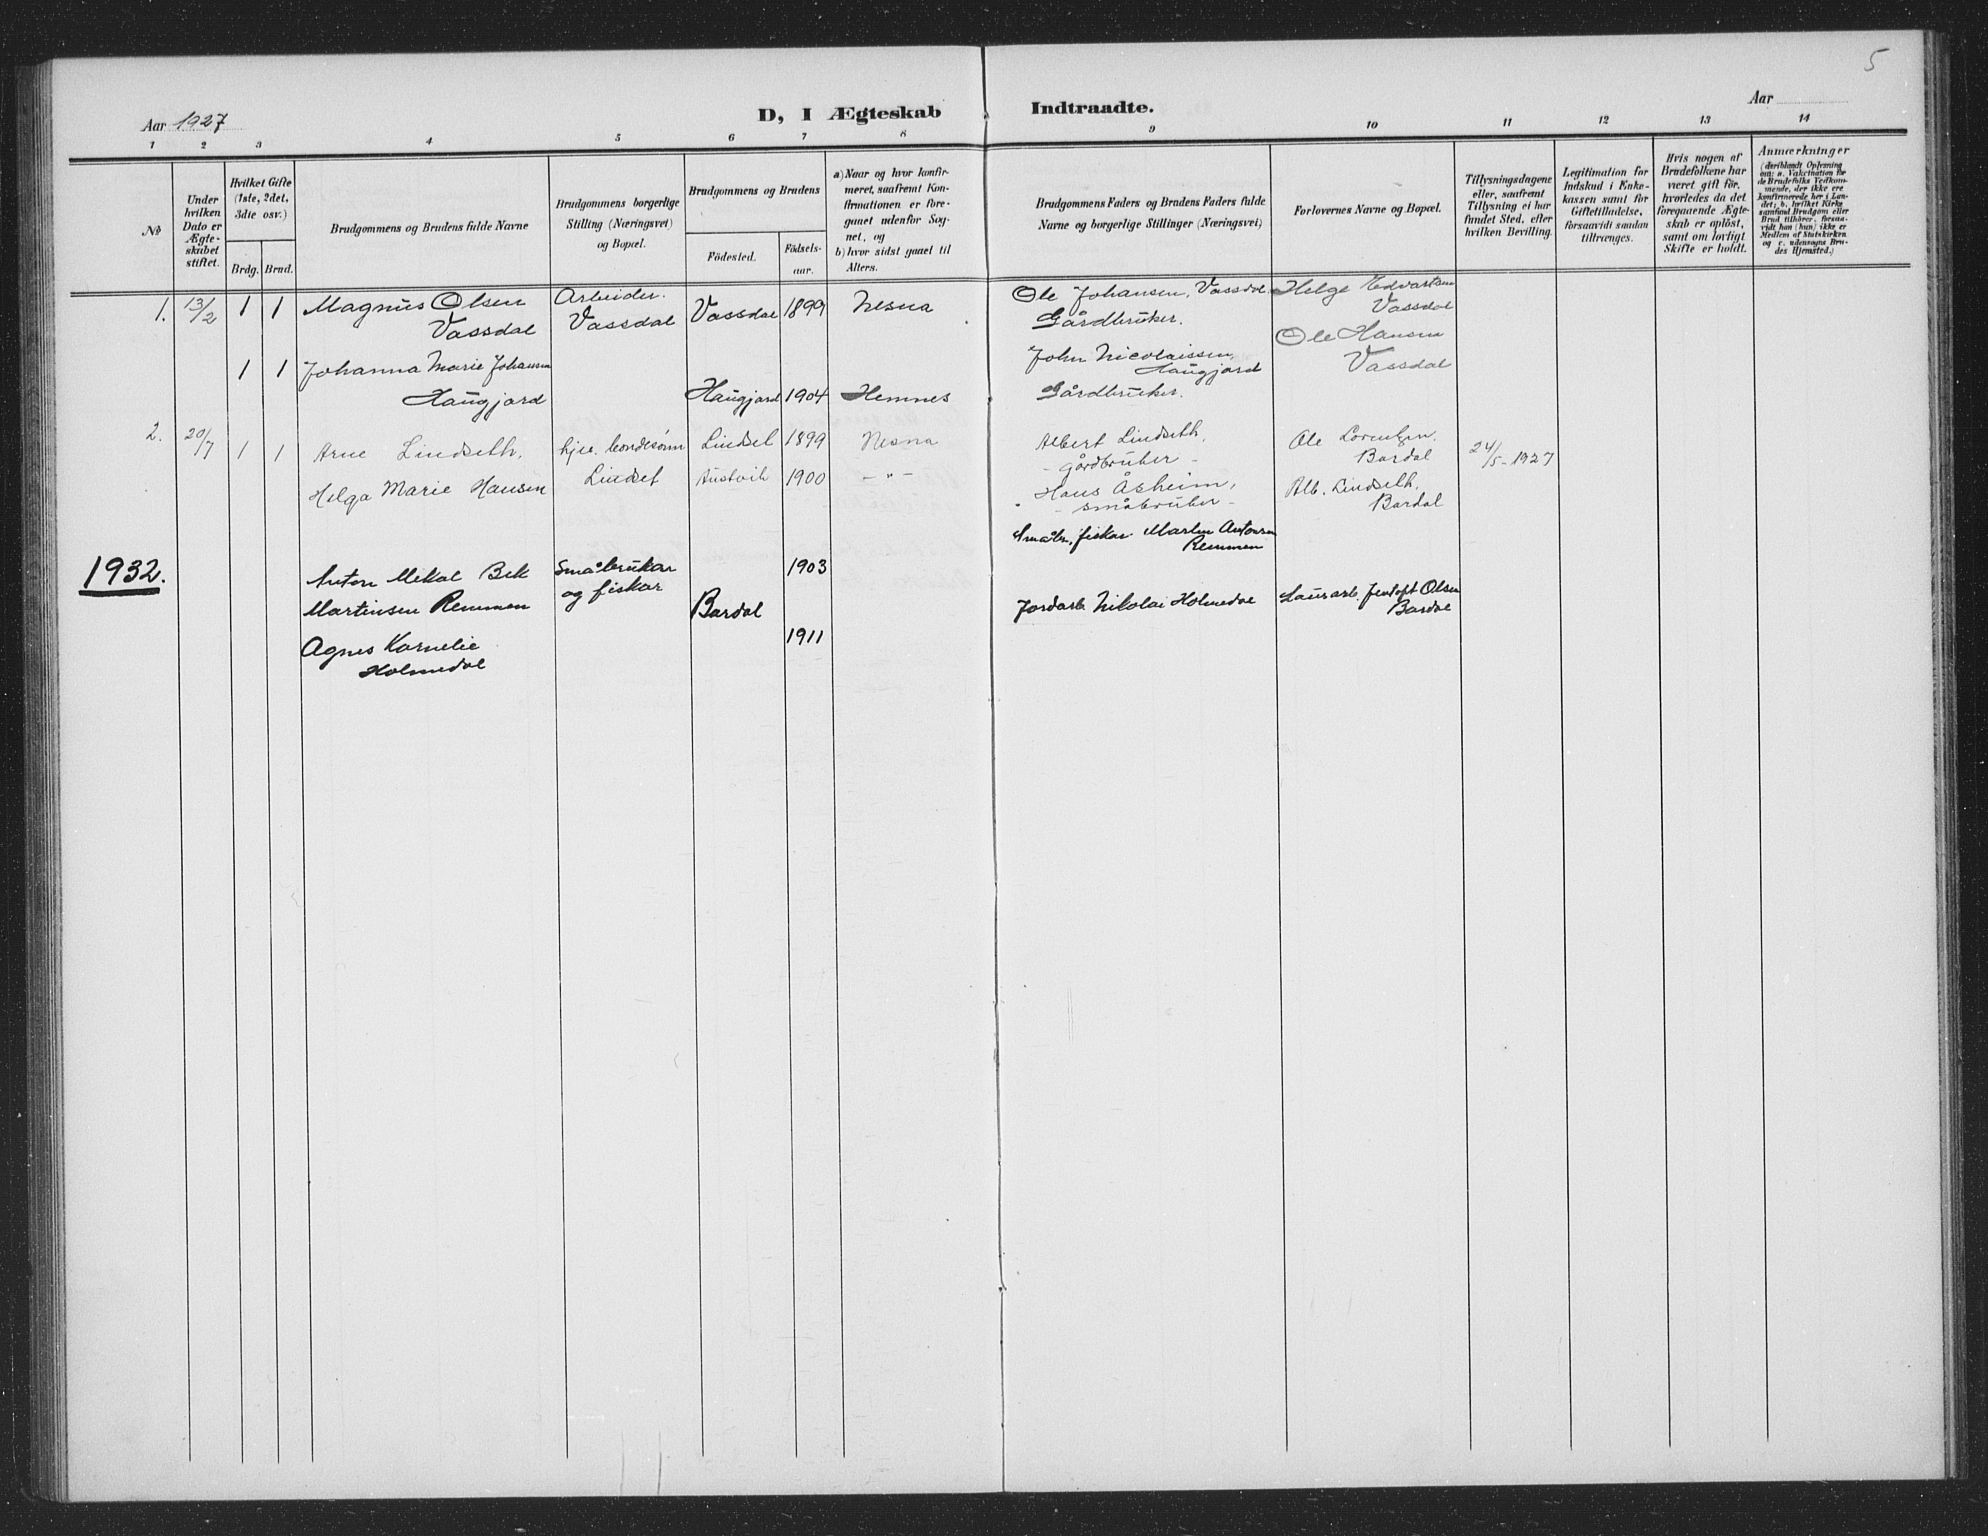 5
Aar 1927
D, I Ægteskab Indtraadte.
Aar
1 2 3 4 5 6 7 8 9 10 11 12 13 14
No
Under hvilken Dato er Ægteskabet stiftet.
Hvilket Gifte (1ste, 2det, 3die osv.)
Brdg. Brud.
Brudgommens og Brudens fulde Navne
Brudgommens borgerlige Stilling (Næringsvei) og Bopæl.
Brudgommens og Brudens
Födested.
Födselsaar.
a) Naar og hvor konfirmeret, saafremt Konfirmationen er foregaaet udenfor Sognet, og
b) hvor sidst gaaet til Alters.
Brudgommens Faders og Brudens Faders fulde Navne og borgerlige Stillinger (Næringsvei)
Forlovernes Navne og Bopæl.
Tillysningsdagene eller, saafremt Tillysning ei har fundet Sted, efter hvilken Bevilling.
Legitimation for Indskud i Enkekassen samt for Giftetilladelse, forsaavidt saadan tiltrænges.
Hvis nogen af Brudefolkene har været gift för, hvorledes da det foregaaende Ægteskab er oplöst, samt om lovligt Skifte er holdt.
Anmærkninger
(deriblandt Oplysning om: a. Vakcination for de Brudefolks Vedkommende, der ikke ere konfirmerede her i Landet; b. hvilket Kirkesamfund Brudgom eller Brud tilhörer, forsaavidt han (hun) ikke er Medlem af Statskirken og c. udensogns Brudes Hjemsted.)
1. 13/2 1 1 Magnus Olsen Arbeider. Vassdal 1899 Nesna Ole Johansen, Vassdal Helge Edvartsen
Vassdal Vassdal Gårdbruker. Vassdal
Ole Hansen
1 1 Johanna Marie Johansen John Nicolaissen, Vassdal
Haugjord Haugjord 1904 Hemnes Haugjord
Gårdbruker.
2. 20/7 1 1 Arne Lindseth, hje. bondesønn Lindset 1899 Nesna Albert Lindseth, Ole Lorentzen, 24/5-1927
Lindset - gårdbruker - Bardal
Helga Marie Hansen Austvik 1900 - " - Hans Åsheim, Alb. Lindseth,
- småbruker - Bardal
Småbr., fiskar Martin Antonsen
Remmen
1932. Anton Mikal Bek Småbrukar 1903
Martinsen Remmen og fiskar Bardal Jordarb. Nikolai Holmedal Saurarb. Jentoft Olsen
Bardal
Agnes Kornelie 1911
Holmedal